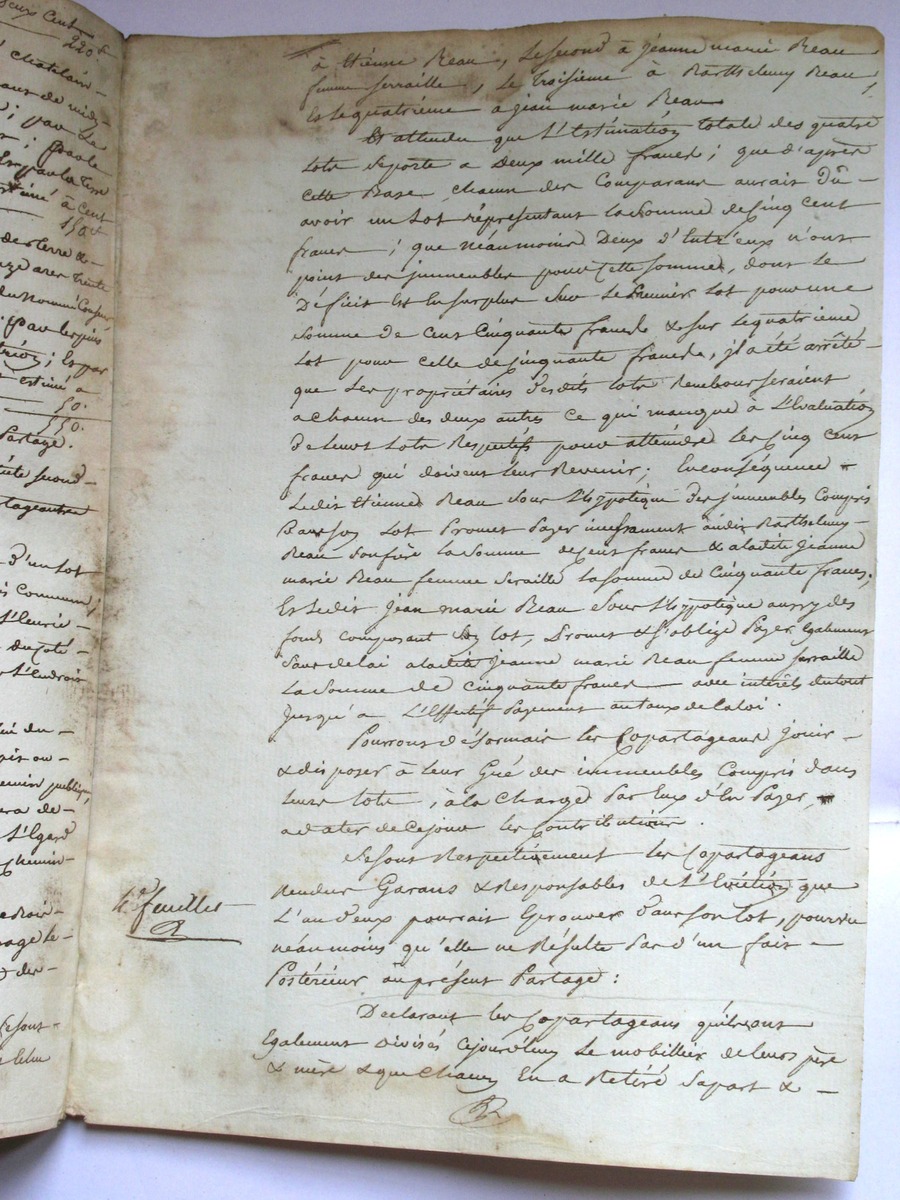 eux Cent
220 f
chatelain
aux de midy
; par le
; par le
Et par la Terre
timé à cent
150 ct
de terre &
nze ares Trente
du Nommé
. par les
; Et par
estimé a
50.
550.
Partage.
second
tageantes
D'un Lot
is Commun
du Coté
L'Endroit
ui du
emin publique
era de
L'Egard
chemin
de
à étienne Reau, Le second à jeanne marie Reau
femme serraille, Le Troisieme à Barthelemy Reau,
Et Le quatrieme a jean marie Reau
Et attendu que L'Estimation totale des quatre
Lots se porte a Deux mille francs ; que d'après
cette Base chacun des Comparans aurait Dû
avoir un Lot réprésentant la somme de Cinq cent
francs ; que néanmoins Deux d'Entr'eux n'ont
point des jmmeubles pour Cette somme, dont le
Déficit Est En surplus sur Le Premier Lot pour une
somme de cent Cinquante francs & sur Le quatrieme
Lot pour celle de Cinquante francs, jl a été arrêté
que Les propriétaires desdits Lots Rembourseraient
a chacun des deux autres ce qui manque à L'Evaluation
de leurs Lots Respectifs pour atteindre Les Cinq cent
francs qui doivent leur Revenir ; En conséquence
Ledit Etienne Reau sous L'hyppotèque des jmmeubles Compris
Dans son Lot Promet Payer incessament audit Barthelemy
Reau son frère la somme de Cent francs & a ladite Jeanne
marie Reau femme seraille La somme de Cinquante francs,
Et Ledit jean marie Reau sous L'hyppotèque aussy des
fonds composant son lot, Promet & s'oblige Payer Egalement
sans delai a ladite jeanne marie Reau femme serraille
La somme de Cinquante francs avec intérêts du tout
jusqu'a L'Effectif Payement au taux de la loi.
Pourront désormais les Copartageans jouir
& disposer à leur Gré des immeubles Compris dans
leurs lots, à la Charge Par Eux d'En Payer
a dater de Ce jour les Contributions.
Se sont Respectivement les Copartageans
Rendus Garans & Responsables de L'Eviction que
L'un d'eux pourrait Eprouver dans son lot, pourvu
néanmoins qu'elle ne Résulte Pas d'un fait
Postérieur au présent Partage :
4e feuillet
Declarant les Copartageans qu'ils ont
Egalement Divisés Cejourd'huy Le mobillier de leurs père
& mère & que Chacun En a Retiré sa part &